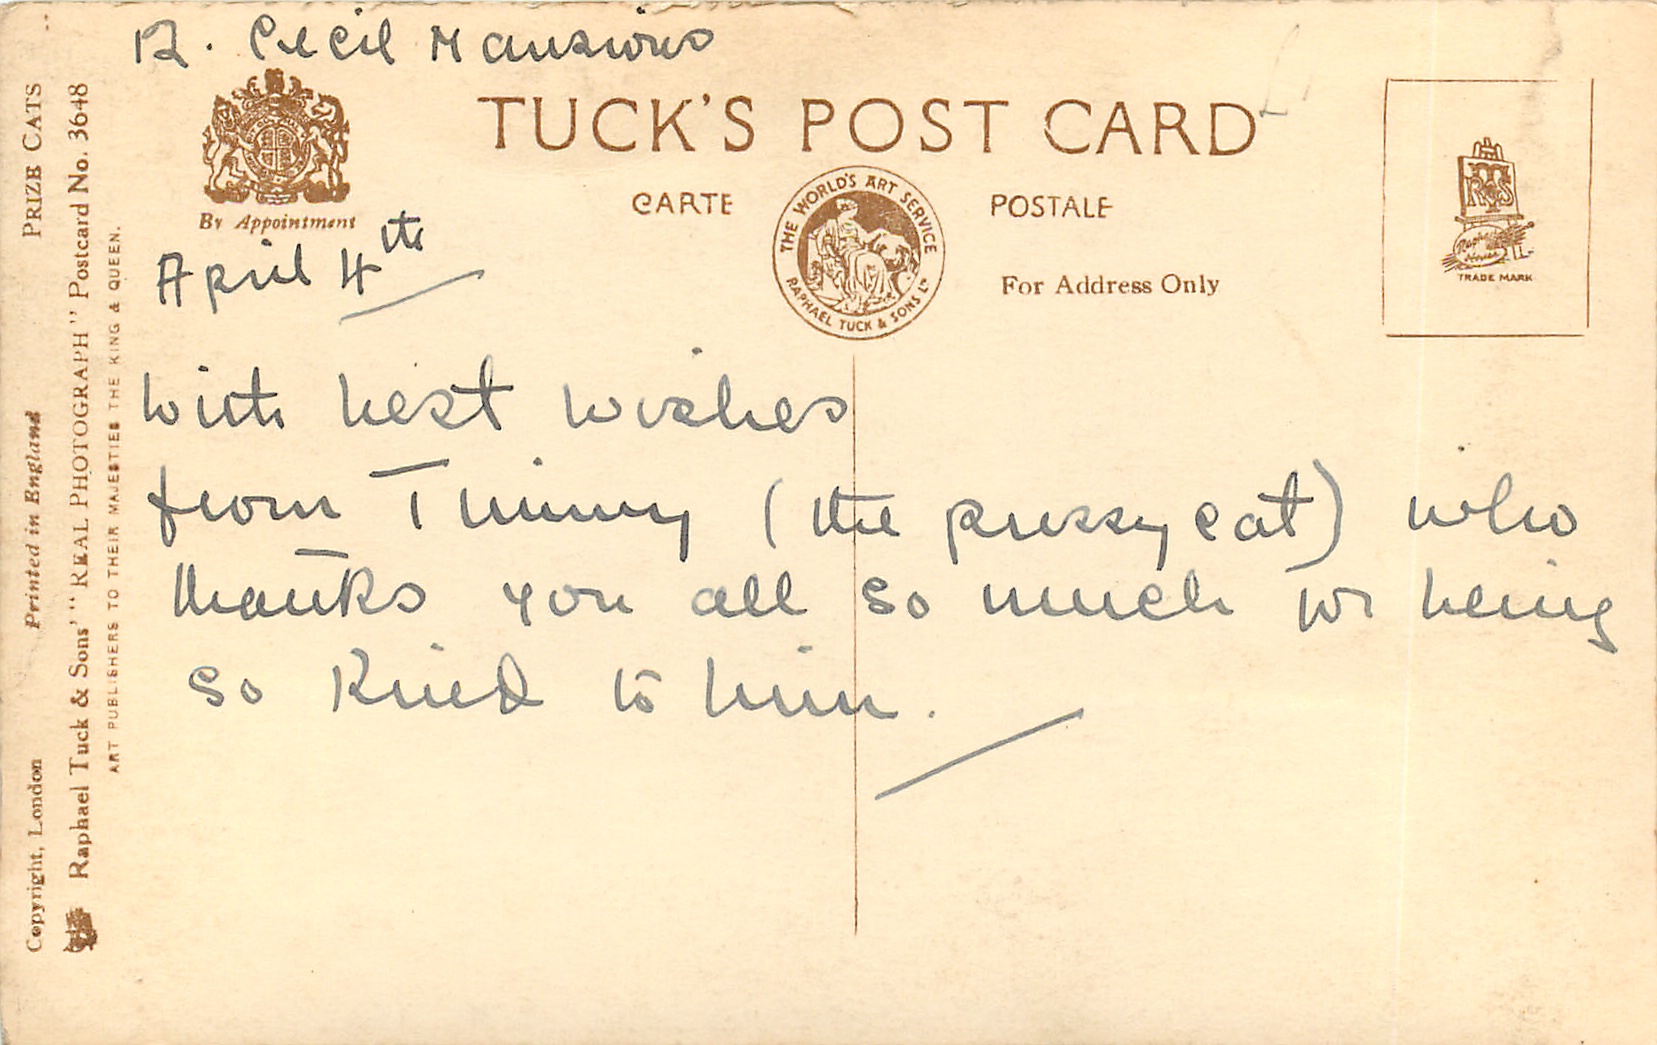 12. Cecil Mansions
TUCK'S POST CARD
CARTE POSTALE
By Appointment
THE WORLD'S ART SERVICE
RAPHAEL TUCK & SONS LD
For Address Only
TRADE MARK
April 4th
With best wishes
from Timmy (the pussy cat) who
thanks you all so much for being
so kind to him.
PRIZE CATS
Printed in England
Copyright, London
Raphael Tuck & Sons' "REAL PHOTOGRAPH" Postcard No. 3648
ART PUBLISHERS TO THEIR MAJESTIES THE KING & QUEEN.